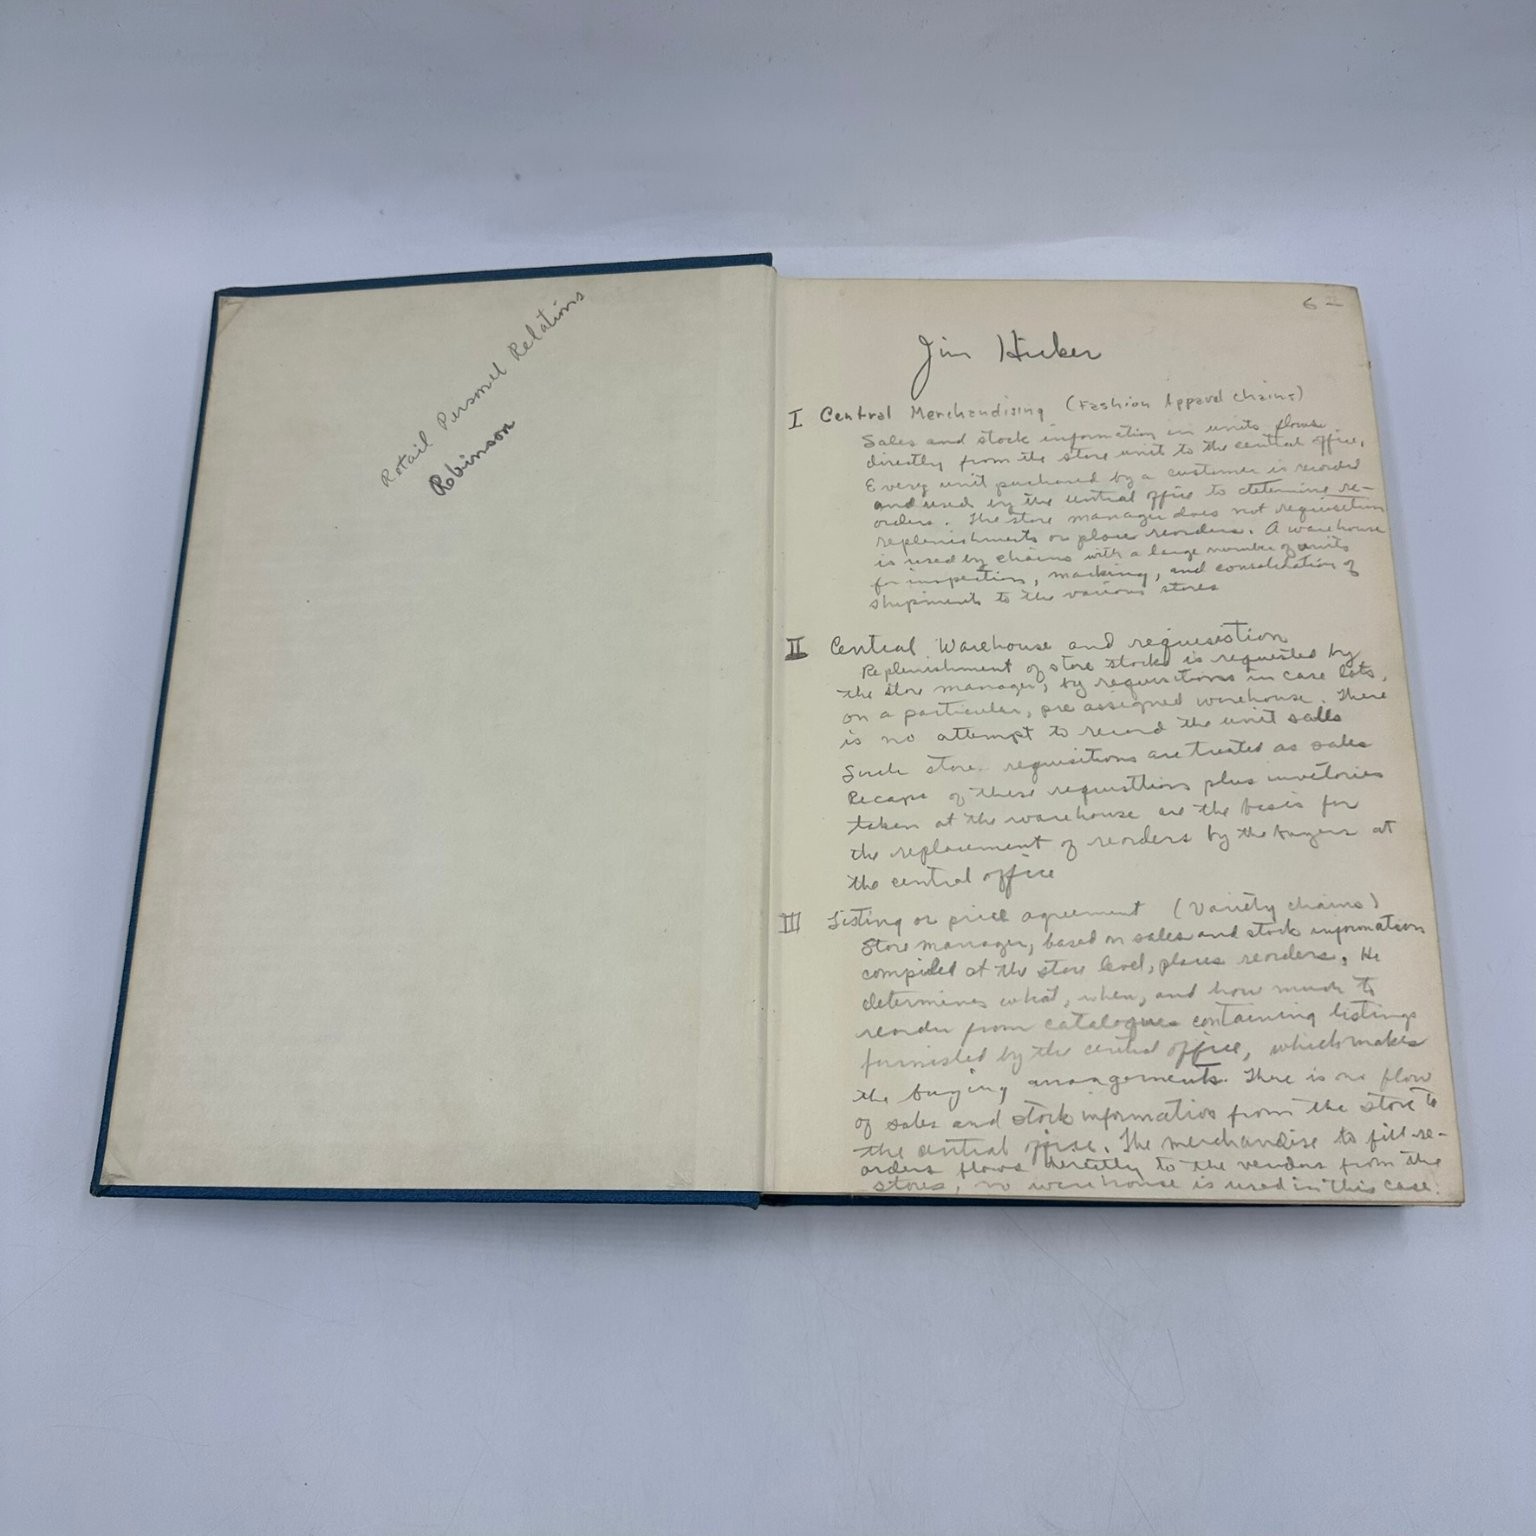 Retail Personel Relations
Robinson
6 —
Jim Huber
I Central Merchandising (Fashion Apparel chains)
Sales and stock information in units flows
directly from the store unit to the central office.
Every unit purchased by a customer is recorded
and used by the central office to determine re-
orders. The store manager does not requisition
replenishments or place reorders. A warehouse
is used by chains with a large number of units
for inspection, marking, and consolidation of
shipments to the various stores
II Central Warehouse and requisistion
Replenishment of store stocks is requested by
the store manager, by requisitions in case lots,
on a particular, pre assigned warehouse. There
is no attempt to record the unit sales
Such store requisitions are treated as sales
Recaps of these requisitions plus invetories
taken at the warehouse are the basis for
the replacement of reorders by the buyers at
the central office
III Listing or price agreement (Variety chains)
Store manager, based on sales and stock information
compiled at the store level, places reorders. He
determines what, when, and how much to
reorder from catalogues containing listings
furnished by the central office, which makes
the buying arrangements. There is no flow
of sales and stock information from the store to
the central office. The merchandise to fill re-
orders flows directly to the vendor from the
stores, no warehouse is used in this case.